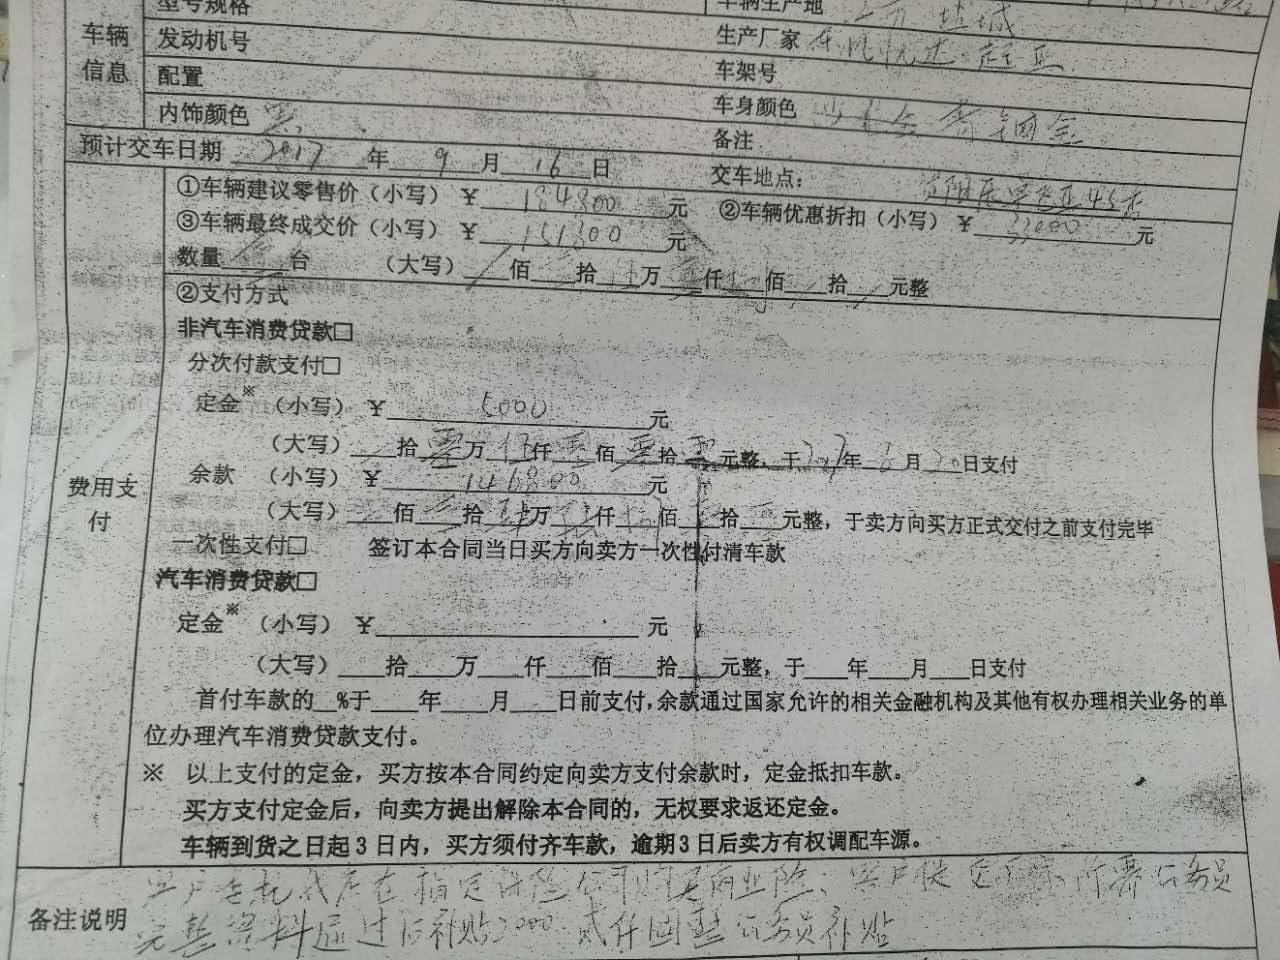 型号规格 车辆生产地 盐城
车辆信息
发动机号 生产厂家 东风悦达 起亚
配置 车架号
内饰颜色 黑 车身颜色
备注
预计交车日期 2017 年 9 月 16 日 交车地点：
①车辆建议零售价（小写）￥ 184800 元 ②车辆优惠折扣（小写）￥ 33000 元
③车辆最终成交价（小写）￥ 151800 元
数量 台 （大写） 佰 拾 万 仟 佰 拾 元整
②支付方式
非汽车消费贷款□
分次付款支付□
定金※（小写）￥ 5000 元
（大写） 拾 零 万 伍 仟 零 佰 零 拾 零 元整，于 2017 年 8 月 30 日支付
余款（小写）￥ 146800 元
（大写） 佰 拾 肆 万 陆 仟 捌 佰 拾 元整，于卖方向买方正式交付之前支付完毕
费用支付
一次性支付□ 签订本合同当日买方向卖方一次性付清车款
汽车消费贷款□
定金※（小写）￥ 元
（大写） 拾 万 仟 佰 拾 元整，于 年 月 日支付
首付车款的 %于 年 月 日前支付，余款通过国家允许的相关金融机构及其他有权办理相关业务的单
位办理汽车消费贷款支付。
※ 以上支付的定金，买方按本合同约定向卖方支付余款时，定金抵扣车款。
买方支付定金后，向卖方提出解除本合同的，无权要求返还定金。
车辆到货之日起3日内，买方须付齐车款，逾期3日后卖方有权调配车源。
备注说明
客户在我店在指定保险公司购买商业险，客户提 所需公务员
完整资料通过后补贴2000 贰仟圆整公务员补贴